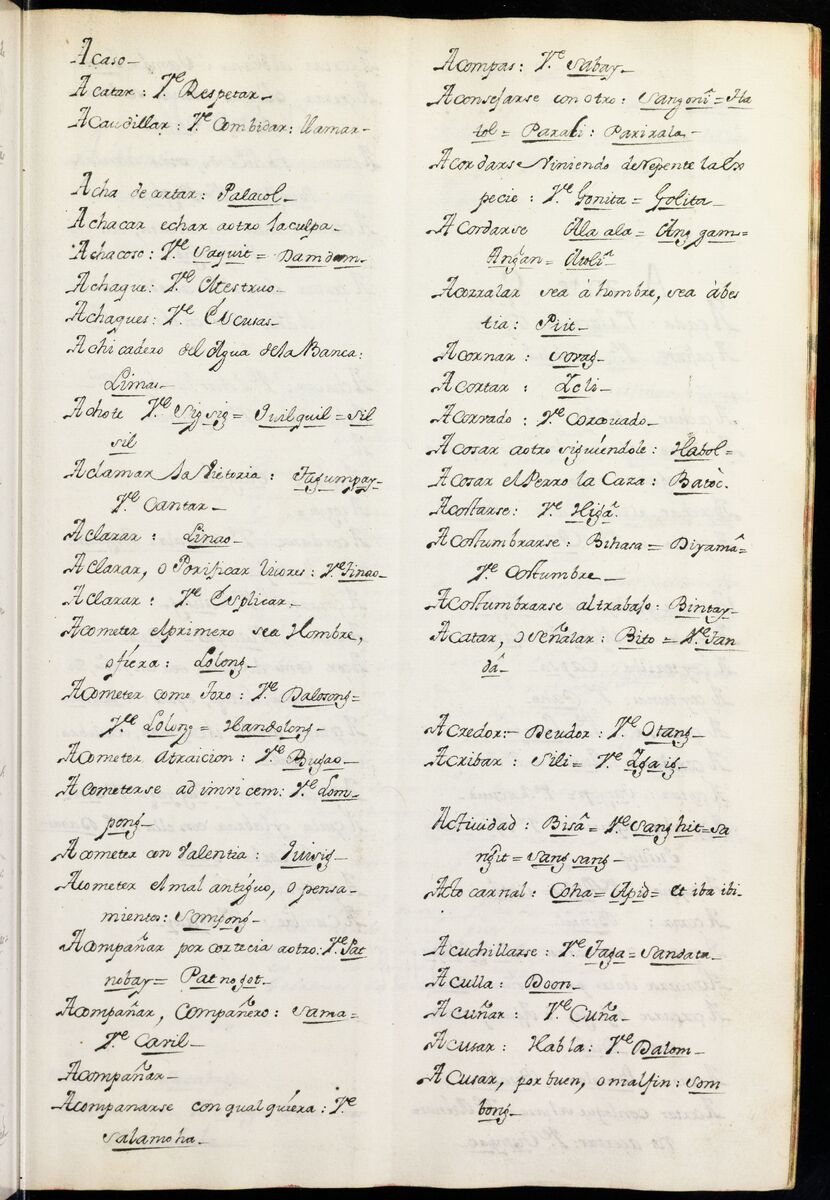 Acaso_
Acatar: V.e Respetar_
Acaudillar: V.e Combidar: llamar-
Acha de cortar: Palacol_
Achacar echar aotro laculpa_
Achacoso: V.e Saquit = Damdam_
Achaque: V.e Mestruo_
Achaques: V.e Escusas_
Achicadero del Agua dela Banca:
Limas_
Achote V.e Sigsig = Guilguil = Sil
sil
Aclamar la Victoria: Tagumpay_
V.e Cantar_
Aclarar: Linao_
Aclarar, o Porificar licores: V.e Tinao_
Aclarar: V.e Esplicar_
Acometer elprimero sea Hombre,
ofiera: Lolong_
Acometer como Toro: V.e Dalosong=
V.e Lolong = Handolong_
Acometer atraicion: V.e Bugao_
Acometerse adimricem: V.e Lom-
pong_
Acometer con Valentia:
Acometer el mal antiguo, o pensa-
mientos: Sompong_
Acompañar por cortecia aotro: V.e Pat
nobay = Patnogot_
Acompañar, Compañero: Sama=
V.e Caril_
Acompañar_
Acompanarse con qual quiera: V.e
Salamoha_
Acompas: V.e Sabay_
Aconsejarse con otro: Sangoni = Ha
tol = Parali: Parirala_
Acordarse Viniendo deRepente la Es
pecie: V.e Gonita = Golita_
Acordarse Ala ala = Ang gam=
Angan = Auli
Acorralar sea à hombre, sea àbes
tia: Piit_
Acornar: Sorag_
Acortar:
Acorrado: V.e Corcovado_
Acosar aotro siguiéndole: Habol=
Acosar elPerro la Caza: Batoc.
Acostarse: V.e Higâ
Acostumbrarse: Bihasa = Diyamâ=
V.e Costumbre_
Acostumbrarse altrabajo: Bintay_
Acatar, o Señalar: Bito = V.e Tan
dâ_
Acredor:- Deudor: V.e Otang_
Acribar: Sili = V.e Igaig_
Actividad: Bisâ = V.e Sanghit = sa
ngit = sang sang_
Acto carnal: Coha = Apid = et ibi ibi_
Acuchillarse: V.e Taga = Sandata_
Aculla: Doon_
Acuñar: V.e Cuña_
Acusar: Habla: V.e Dalom_
Acusar, por buen, o malfin: Som
bong_